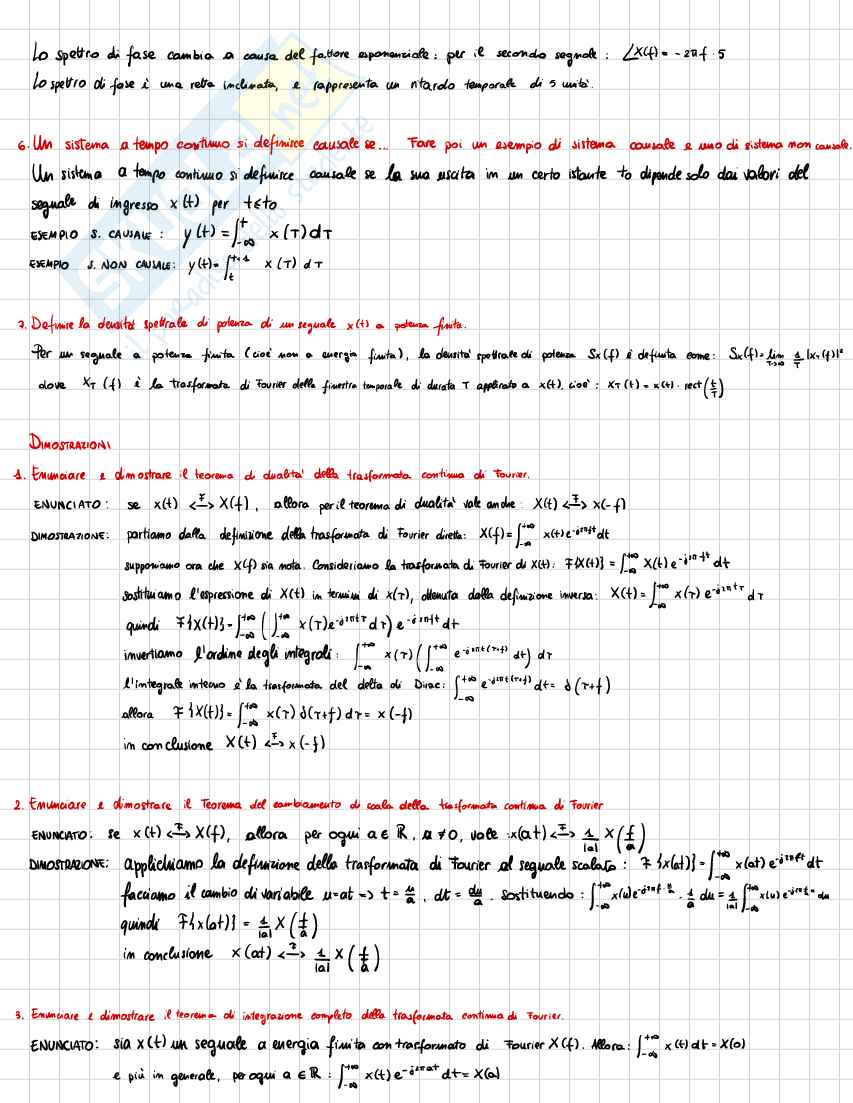 Lo spettro di fase cambia a causa del fattore esponenziale: per il secondo segnale: ∠X(f) = -2πf·5
Lo spettro di fase è una retta inclinata, e rappresenta un ritardo temporale di 5 unità.
6. Un sistema a tempo continuo si definisce causale se... Fare poi un esempio di sistema causale e uno di sistema non causale.
Un sistema a tempo continuo si definisce causale se la sua uscita in un certo istante to dipende solo dai valori del
segnale di ingresso x(t) per t∈to
ESEMPIO S. CAUSALE: y(t) = ∫_{-∞}^{t} x(τ)dτ
ESEMPIO S. NON CAUSALE: y(t) = ∫_{t}^{t+1} x(τ) dτ
7. Definire la densità spettrale di potenza di un segnale x(t) a potenza finita.
Per un segnale a potenza finita (cioè non a energia finita), la densità spettrale di potenza Sx(f) è definita come: Sx(f) = lim_{T→∞} 1/T |X_T(f)|²
dove X_T(f) è la trasformata di Fourier della finestra temporale di durata T applicata a x(t), cioè: x_T(t) = x(t) · rect(t/T)
DIMOSTRAZIONI
1. Enunciare e dimostrare il teorema di dualità della trasformata continua di Fourier.
ENUNCIATO: se x(t) <-F-> X(f), allora per il teorema di dualità vale anche: X(t) <-F-> x(-f)
DIMOSTRAZIONE: partiamo dalla definizione della trasformata di Fourier diretta: X(f) = ∫_{-∞}^{+∞} x(t)e^{-j2πft}dt
supponiamo ora che X(f) sia nota. Consideriamo la trasformata di Fourier di X(t): F{X(t)} = ∫_{-∞}^{+∞} X(t)e^{-j2πft} dt
sostituiamo l'espressione di X(t) in termini di x(τ), ottenuta dalla definizione inversa: X(t) = ∫_{-∞}^{+∞} x(τ) e^{-j2πtτ} dτ
quindi F{X(t)} = ∫_{-∞}^{+∞} (∫_{-∞}^{+∞} x(τ)e^{-j2πtτ} dτ) e^{-j2πft} dt
invertiamo l'ordine degli integrali: ∫_{-∞}^{+∞} x(τ) (∫_{-∞}^{+∞} e^{-j2πt(τ+f)} dt) dτ
l'integrale interno è la trasformata del delta di Dirac: ∫_{-∞}^{+∞} e^{-j2πt(τ+f)} dt = δ(τ+f)
allora F{X(t)} = ∫_{-∞}^{+∞} x(τ) δ(τ+f) dτ = x(-f)
in conclusione X(t) <-F-> x(-f)
2. Enunciare e dimostrare il Teorema del cambiamento di scala della trasformata continua di Fourier
ENUNCIATO: se x(t) <-F-> X(f), allora per ogni a ∈ ℝ, a ≠ 0, vale: x(at) <-F-> 1/|a| X(f/a)
DIMOSTRAZIONE: applichiamo la definizione della trasformata di Fourier al segnale scalato: F{x(at)} = ∫_{-∞}^{+∞} x(at) e^{-j2πft} dt
facciamo il cambio di variabile u=at => t = u/a, dt = du/a. Sostituendo: ∫_{-∞}^{+∞} x(u)e^{-j2πf·u/a} · 1/a du = 1/|a| ∫_{-∞}^{+∞} x(u) e^{-j2πf/a u} du
quindi F{x(at)} = 1/|a| X(f/a)
in conclusione x(at) <-F-> 1/|a| X(f/a)
3. Enunciare e dimostrare il teorema di integrazione completo della trasformata continua di Fourier.
ENUNCIATO: sia x(t) un segnale a energia finita con trasformata di Fourier X(f). Allora: ∫_{-∞}^{+∞} x(t) dt = X(0)
e più in generale, per ogni a ∈ ℝ: ∫_{-∞}^{+∞} x(t) e^{-j2πat} dt = X(a)